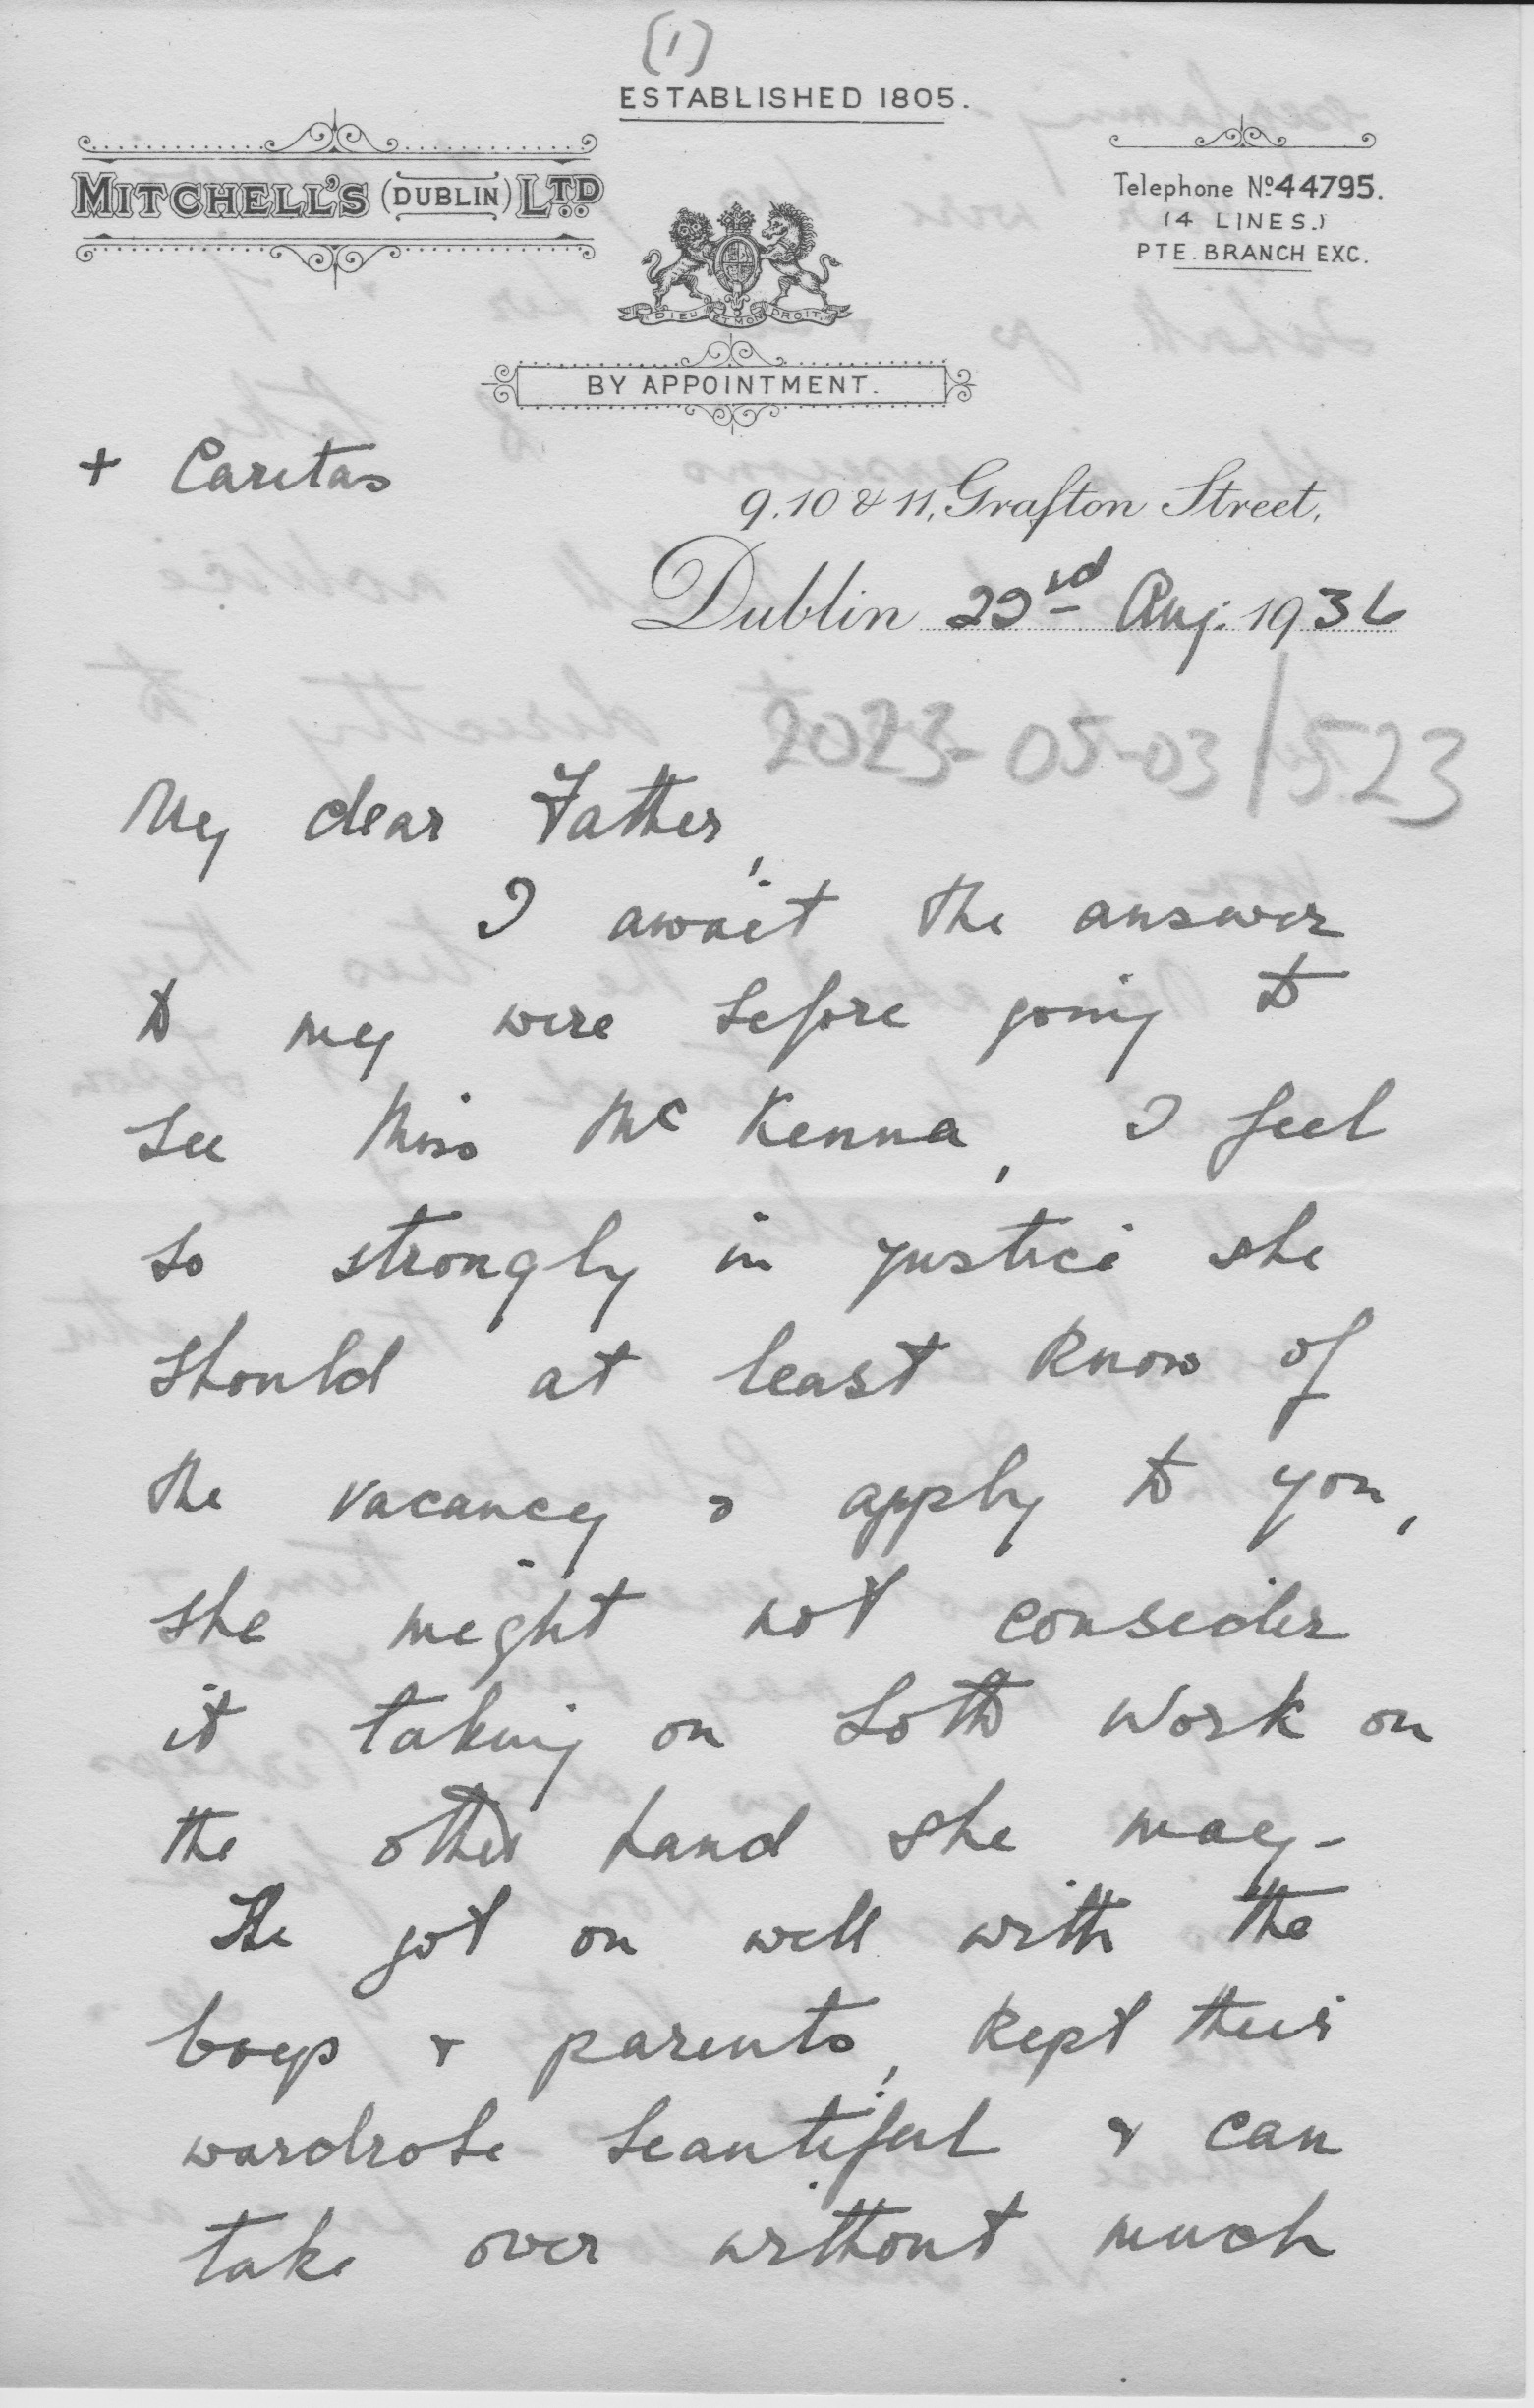 (1)
ESTABLISHED 1805.
MITCHELL'S (DUBLIN) LTD
Telephone No 44795.
(4 LINES.)
PTE. BRANCH EXC.
DIEU ET MON DROIT.
BY APPOINTMENT.
+ Caritas
9, 10 & 11, Grafton Street,
Dublin 22nd Aug: 1936
2023-05-03/523
My dear Father,
I await the answer
to my wire before going to
see Miss McKenna, I feel
so strongly in justice she
should at least know of
the vacancy & apply to you,
she might not consider
it taking on both work on
the other hand she may -
She got on well with the
boys & parents, kept their
wardrobe beautiful & can
take over without much